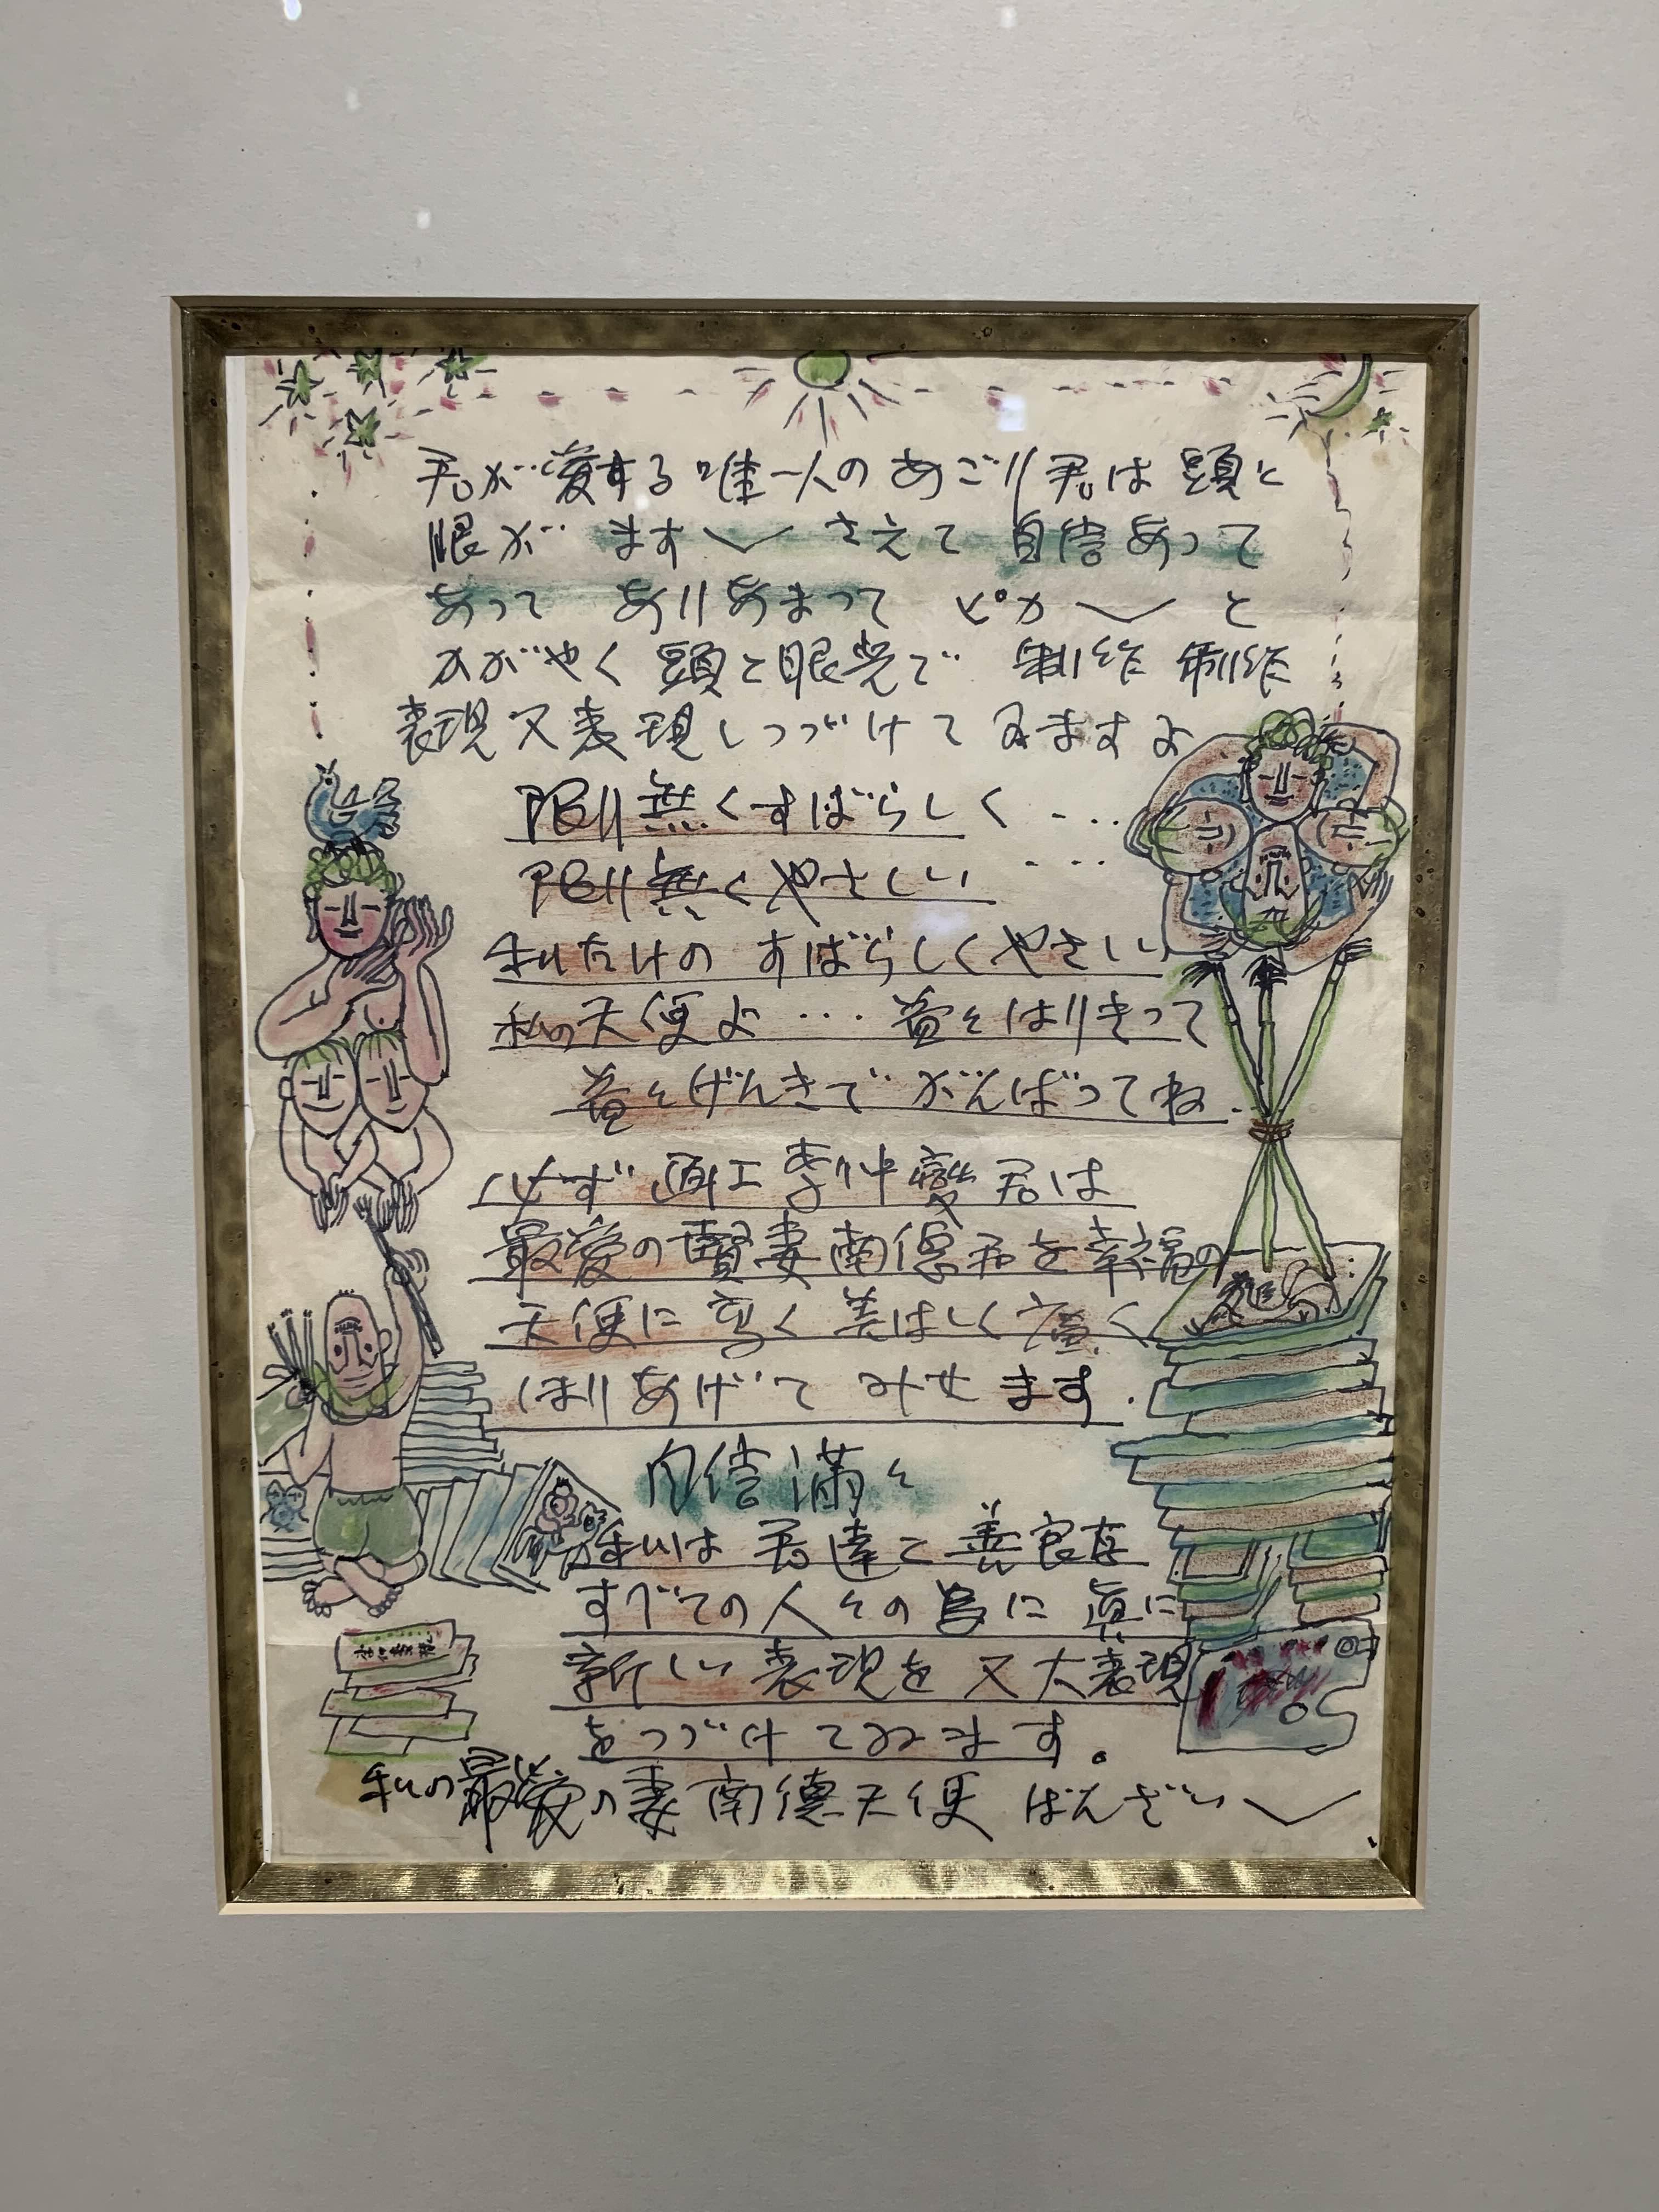 君が愛する唯一人のあごり君は 頭と
眼が ます〜 さえて 自信あって
あって ありあまって ピカ〜 と
かがやく 頭と眼光で 制作 制作
表現又表現しつづけてゐますよ
限り無くすばらしく ‥‥
限り無くやさしい ‥‥
私だけの すばらしくやさしい
私の天使よ … 益々はりきって
益々げんきで がんばってね ‥
必ず 画工 李仲燮君は
最愛の賢妻南徳君を幸福の
天使に 高く 美はしく 広く
ほりあげて みせます.
自信満々
私は 君達と 善良な
すべての人々の為に 真に
新しい 表現を 又大表現
をつづけてゐます。
私の最愛の妻南徳天使 ばんざい〜